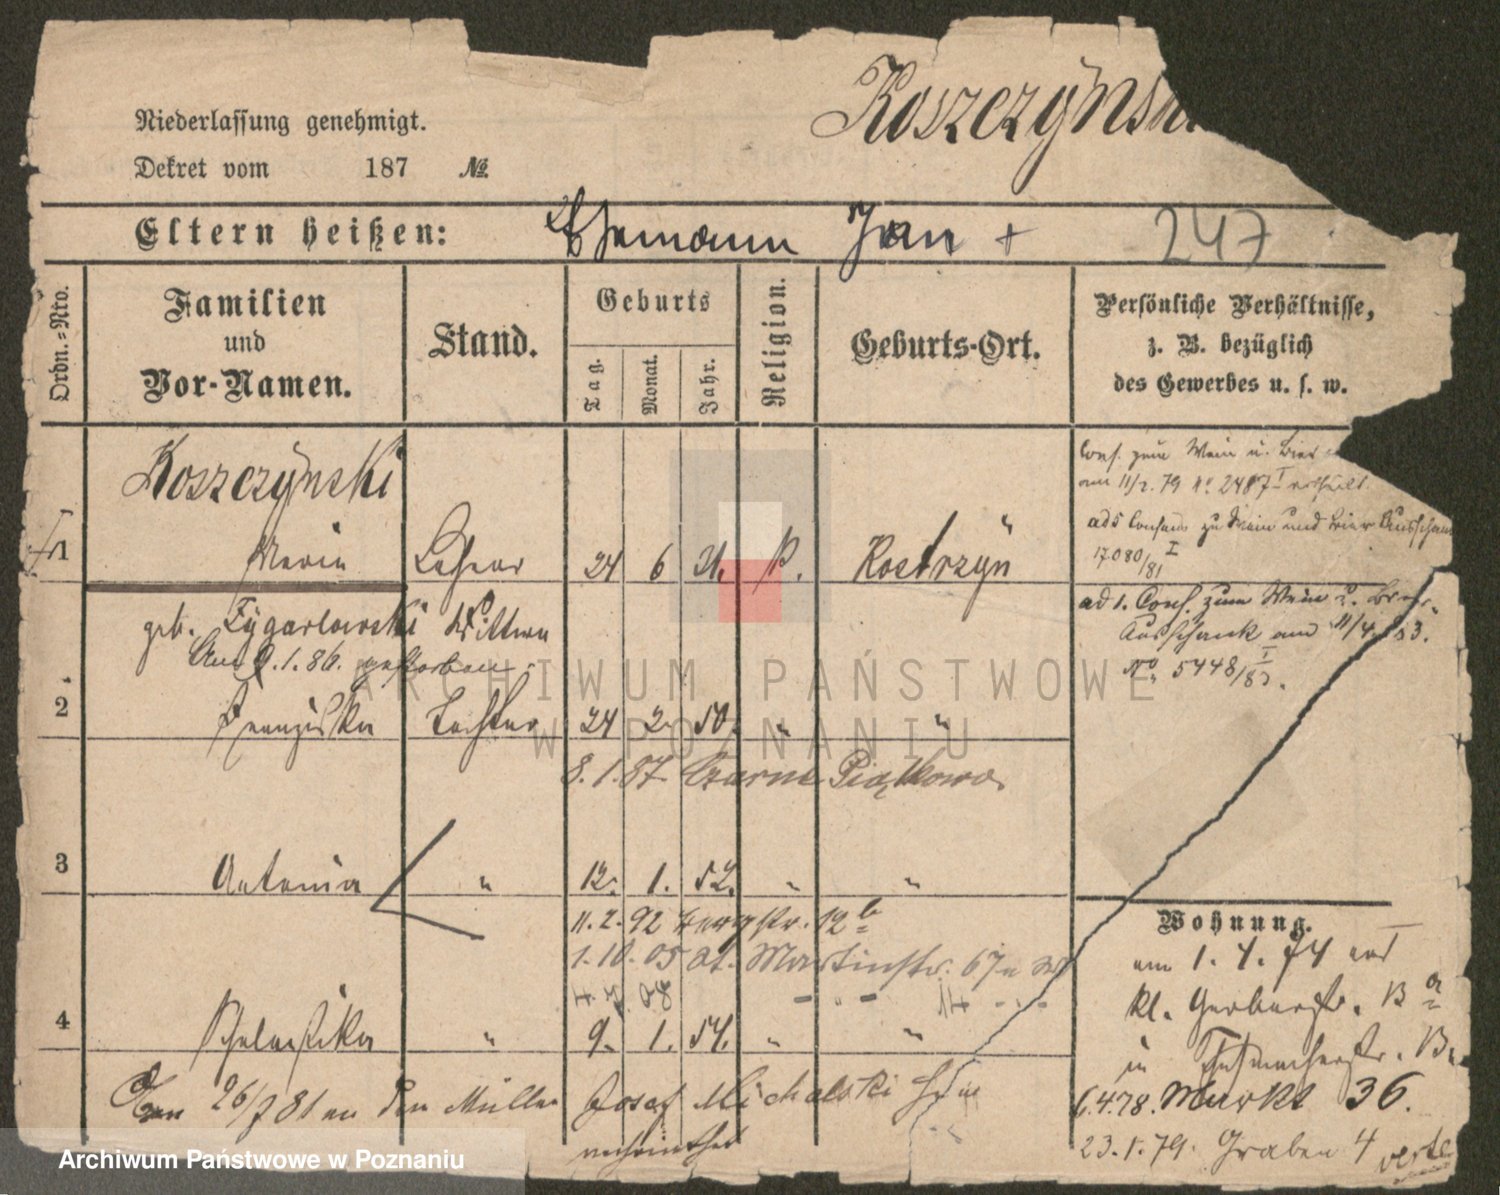 Koszczyńsk
Niederlassung genehmigt.
Dekret vom 187 №
Eltern heißen: Ehemann Jan + 247
Ordn.-Nro.
Familien
und
Vor-Namen.
Stand.
Geburts
Tag.
Monat.
Jahr.
Religion.
Geburts-Ort.
Persönliche Verhältnisse,
z. B. bezüglich
des Gewerbes u. s. w.
Cons. zum Wein u. Bier
am 11/2. 79 No. 2487 I ertheilt.
ad 5 Consens zu Wein und Bier Ausschan
17080/81 I
Koszczyński
†1 Maria 24 6 P. Kostrzyn
geb. Zygarlowski Wittwe
Am 9.1.86. gestorben
ad 1. Cons. zum Wein u. Bier-
Ausschank am 11/4. 83.
No 5448/83. I
2 Franziska Tochter 24 2 50. " "
8.1.87 Czarne Piątkowo
3 Antonia " 12. 1. 52. " "
11.2.92 Bergstr. 12 b
1.10.05 St. Martinstr. 67
4 Scholastika " 9. 1. 54. " "
26/7 81 an den Müller Josef Michalski
verheirathet
Wohnung.
am 1. 4. 74
kl. Gerberstr. 13 a
in
6.4.78. Markt 36.
23.1.79. Graben 4 verte
ARCHIWUM PAŃSTWOWE
W POZNANIU
Archiwum Państwowe w Poznaniu